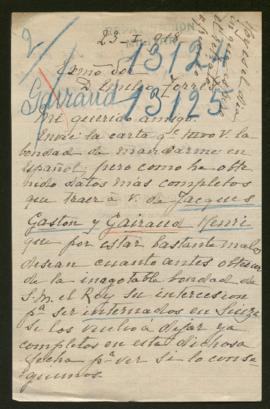 23-I-918
13124
13125
Garraud
Exmo Sor
D. Emilio Torres
Mi querido amigo:
Envié la carta qe tuvo V. la
bondad de mandarme en
español, pero como he obte
nido datos mas completos
que traer a V. de Jacques
Gaston y Gairaud Henri
que por estar bastante malos
desean cuanto antes obtener
de la inagotable bondad de
S.M. el Rey su intercesion
pa ser internados en Suiza
se los vuelvo a dejar ya
completos en esta dichosa
fecha pa ver si lo conse
guimos.